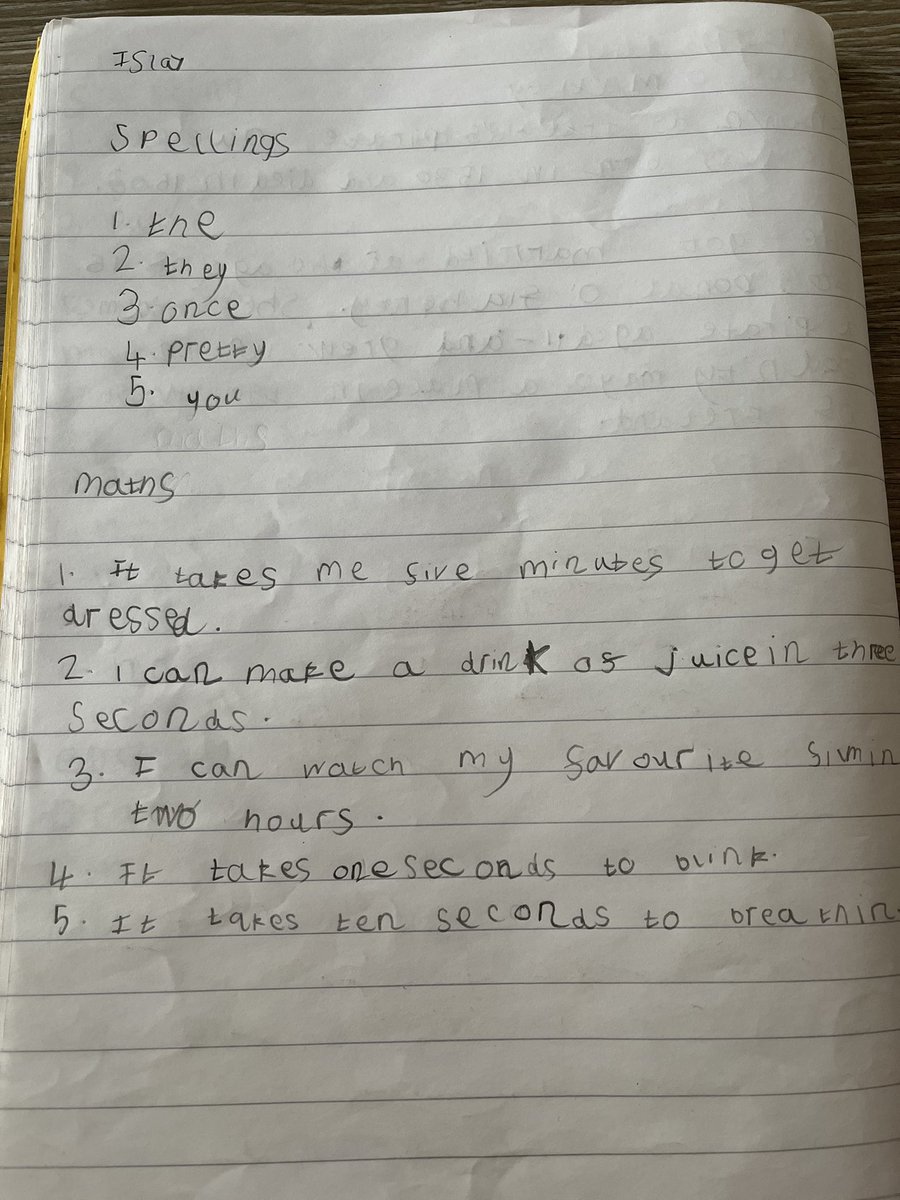 Islay
Spellings
1. the
2. they
3. once
4. pretty
5. you
maths
1. It takes me five minutes to get
dressed.
2. I can make a drink of juice in three
seconds.
3. I can watch my favourite film in
two hours.
4. It takes one seconds to blink.
5. It takes ten seconds to breath in.